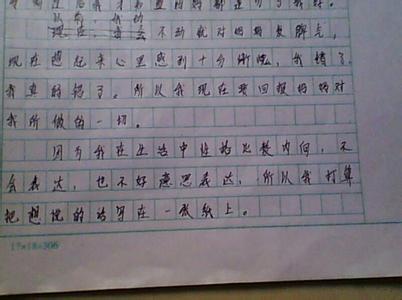 我才知道
以前，我动
不动就对妈妈发脾气，
现在想起来心里感到十分惭愧，我错了，
我真的错了。所以我现在要回报妈妈对
我所做的一切。
因为我在生活中性格比较内向，不
会表达，也不好意思表达，所以我打算
把想说的话写在一张纸上。
17×18=306